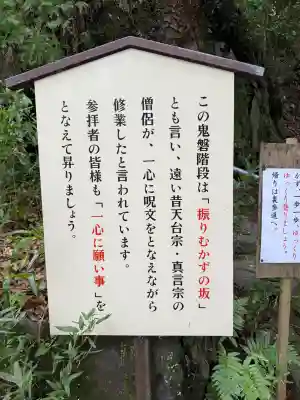 この鬼磐階段は「振りむかずの坂」
とも言い、遠い昔天台宗・真言宗の
僧侶が、一心に呪文をとなえながら
修業したと言われています。
参拝者の皆様も「一心に願い事」を
となえて昇りましょう。
ゆっくり登りましょう。
帰りは裏参道へ。